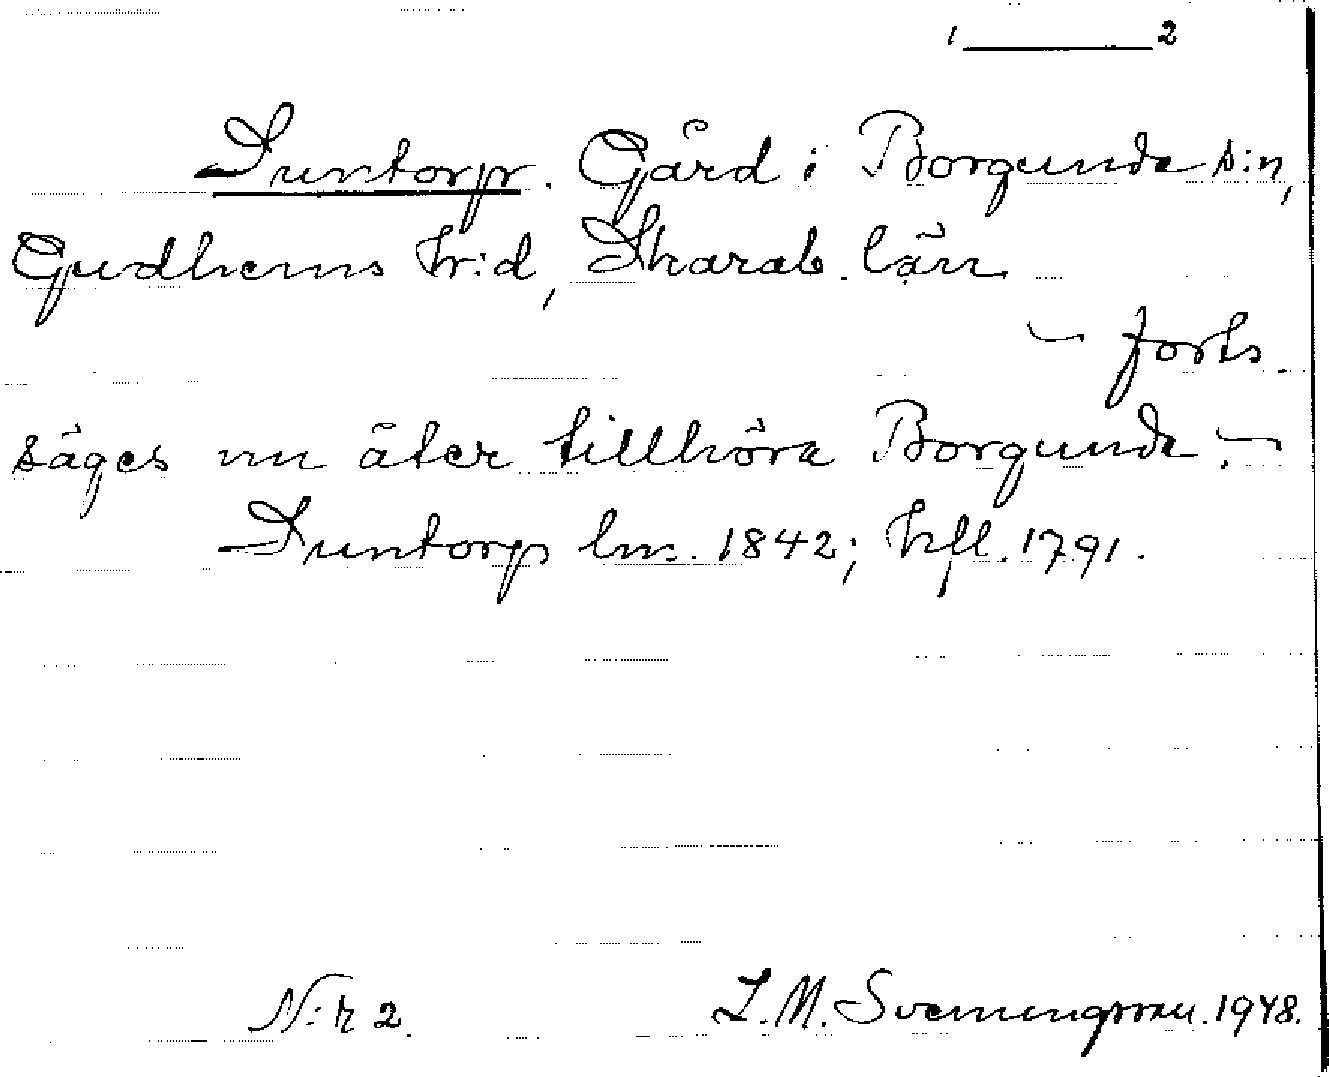 1 2
Suntorp. Gård i Borgunda s:n,
Gudhems h:d, Skarab. län
– forts.
säges nu åter tillhöra Borgunda. –
Suntorp lm. 1842; hfl. 1791.
N:r 2. L. M. Svenungsson. 1948.